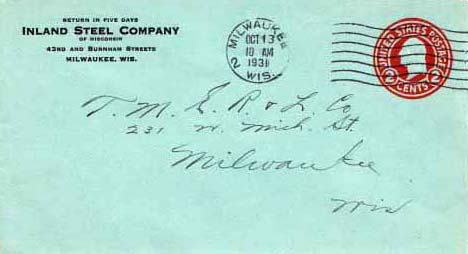 RETURN IN FIVE DAYS
INLAND STEEL COMPANY
OF WISCONSIN
43RD AND BURNHAM STREETS
MILWAUKEE, WIS.
MILWAUKEE
2
OCT 13
10 AM
1931
WIS.
UNITED STATES POSTAGE
2 CENTS 2
T. M. E. R. & L. Co.
231 W. Mich. St.
Milwaukee
Wis